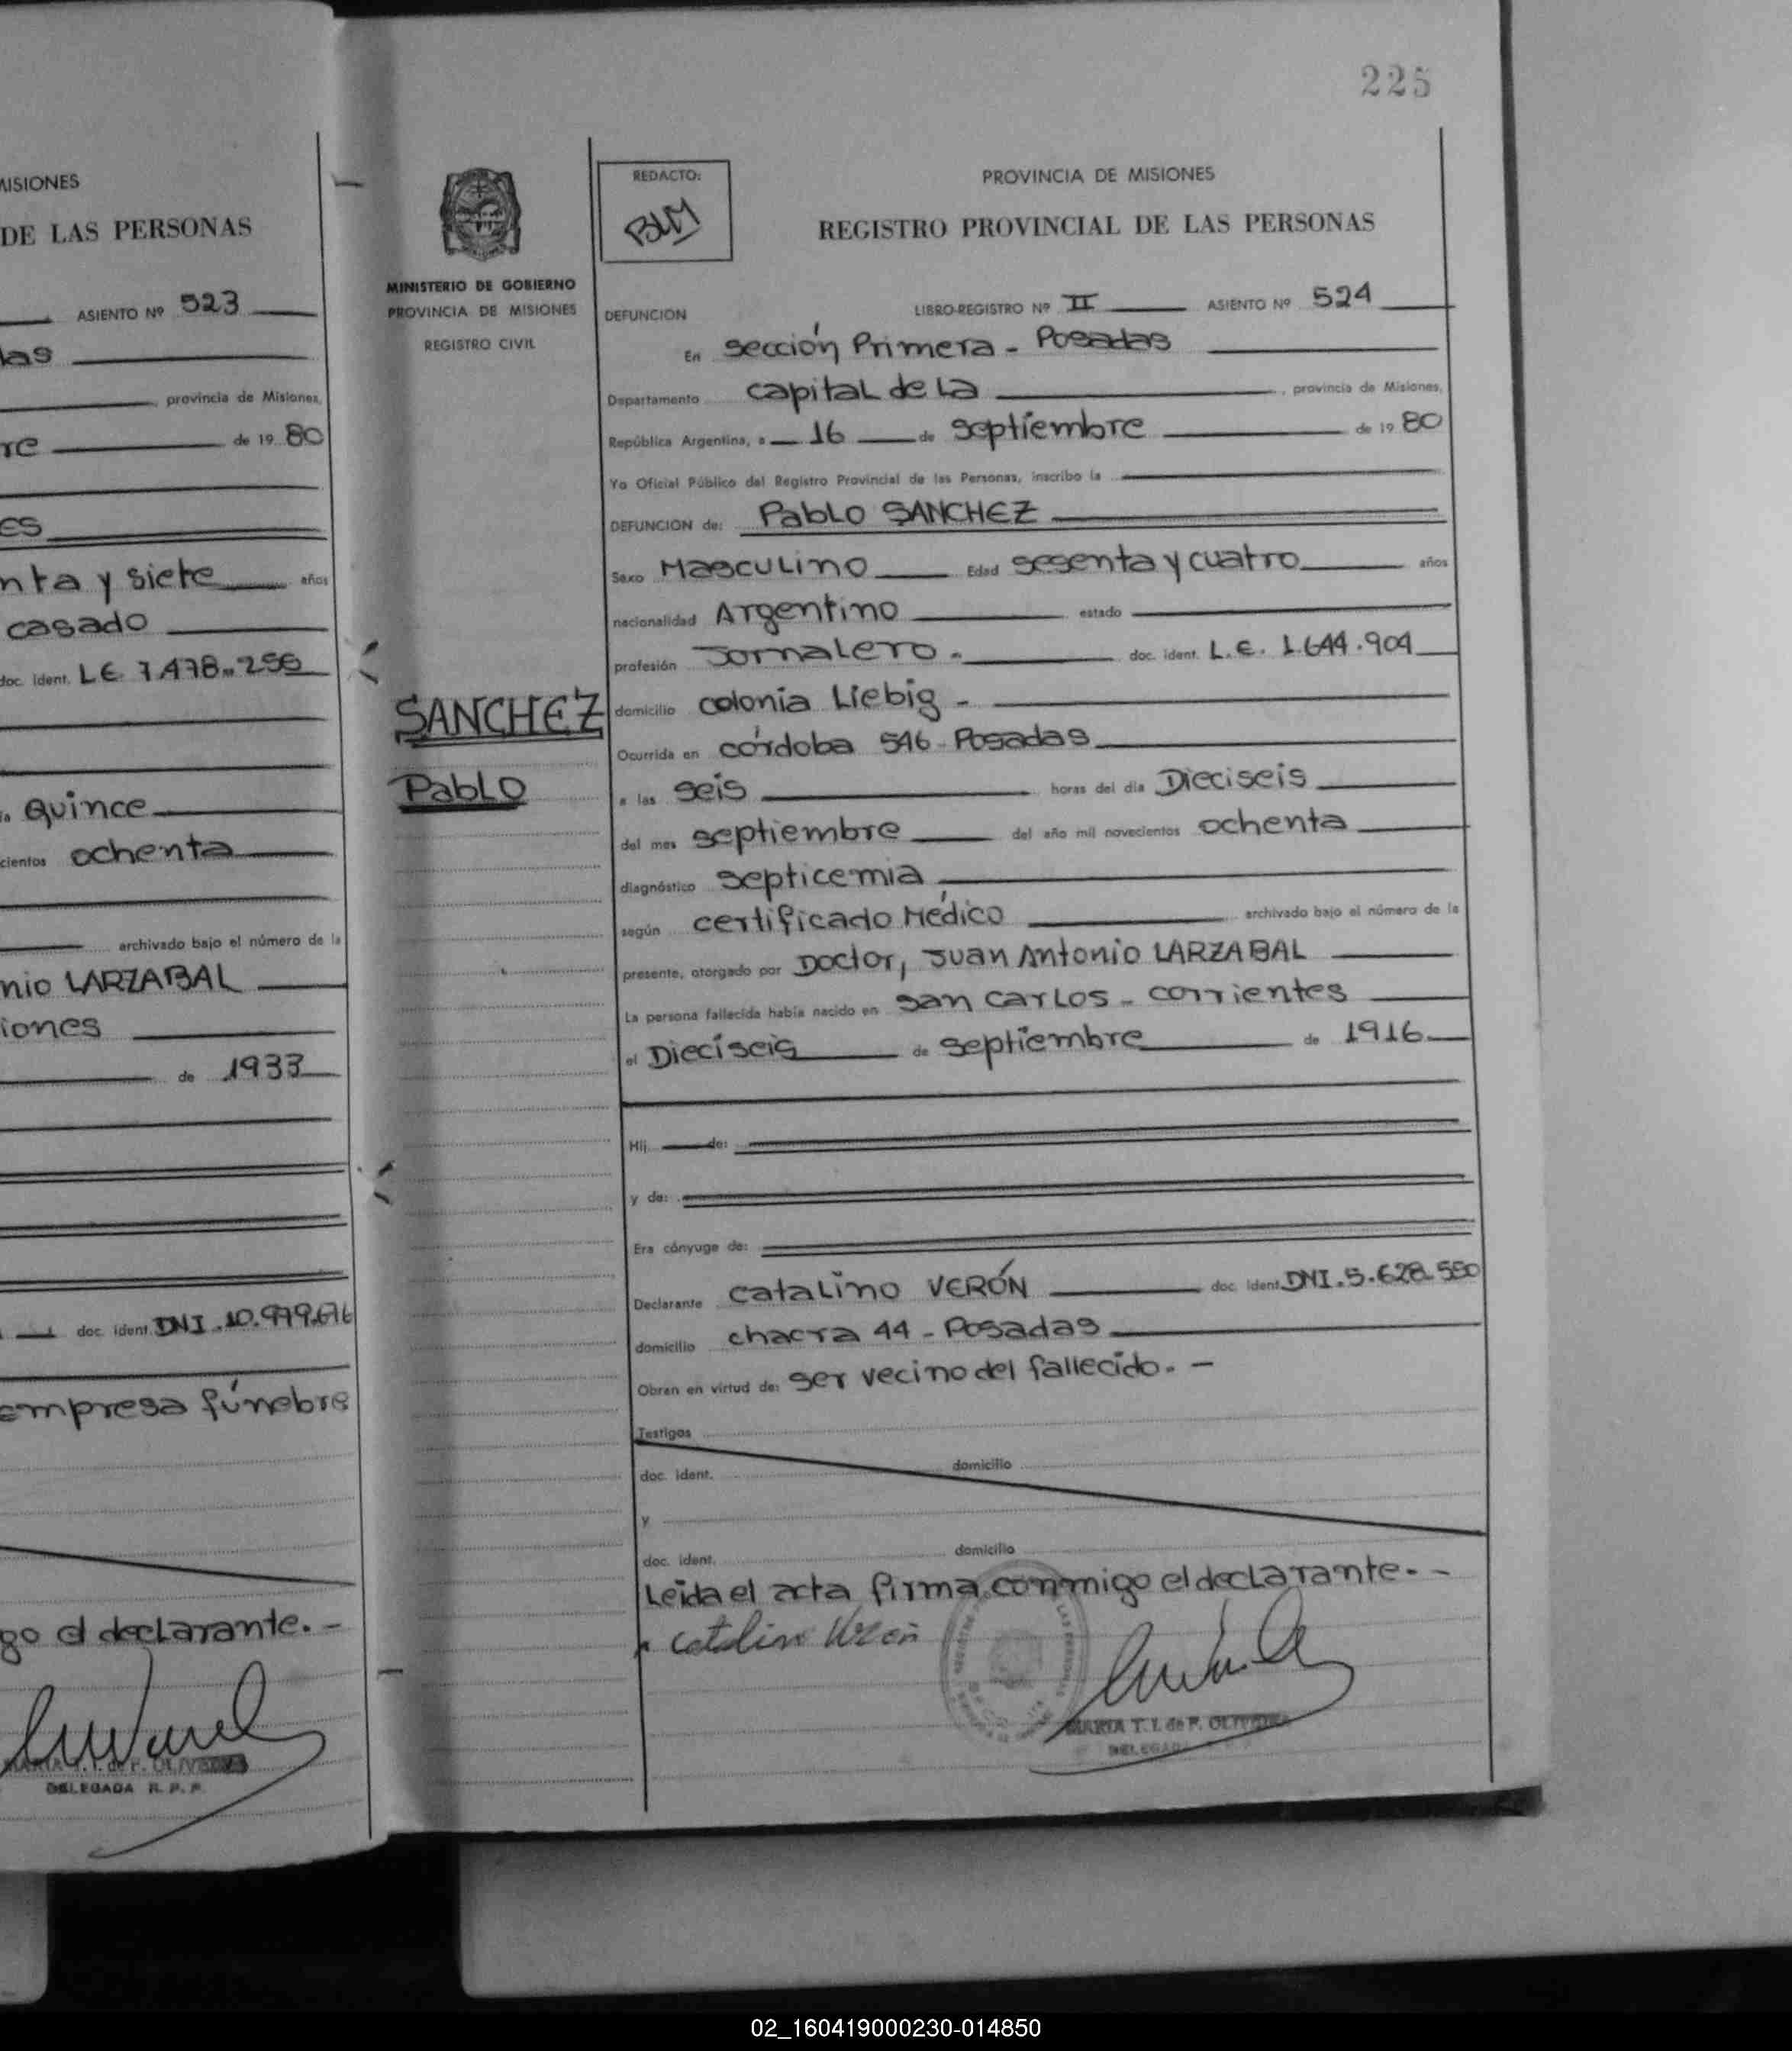 MISIONES
DE LAS PERSONAS
ASIENTO Nº 523
las
provincia de Misiones,
re de 19 80
es
nta y siete años
casado
doc. ident. L.E. 7.478.256
Quince
cientos ochenta
archivado bajo el número de la
nio LARZABAL
iones
de 1933
doc. ident. DNI. 10.979.676
empresa fúnebre
go el declarante. -
DELEGADA R. P. P.
225
MINISTERIO DE GOBIERNO
PROVINCIA DE MISIONES
REGISTRO CIVIL
SANCHEZ
Pablo
REDACTO:
PROVINCIA DE MISIONES
REGISTRO PROVINCIAL DE LAS PERSONAS
DEFUNCION LIBRO-REGISTRO Nº II ASIENTO Nº 524
En sección Primera - Posadas
Departamento capital de la , provincia de Misiones,
República Argentina, a 16 de septiembre de 19 80
Yo Oficial Público del Registro Provincial de las Personas, inscribo la
DEFUNCION de: Pablo SANCHEZ
Sexo Masculino Edad sesenta y cuatro años
nacionalidad Argentino estado
profesión Jornalero. doc. ident. L.E. 1.644.904
domicilio colonia Liebig -
Ocurrida en córdoba 546 - Posadas
a las seis horas del día Dieciseis
del mes septiembre del año mil novecientos ochenta
diagnóstico septicemia
según certificado Médico archivado bajo el número de la
presente, otorgado por Doctor, Juan Antonio LARZABAL
La persona fallecida había nacido en san carlos - corrientes
el Dieciseis de septiembre de 1916
Hij de:
y de:
Era cónyuge de:
Declarante catalino VERÓN doc. ident. DNI. 5.628.550
domicilio chacra 44 - Posadas
Obran en virtud de: ser vecino del fallecido. -
Testigos
doc. ident. domicilio
y
doc. ident. domicilio
Leida el acta firma conmigo el declarante. -
Catalino Verón
MARIA T. I. de F. OLIVEIRA
DELEGADA
02_160419000230-014850